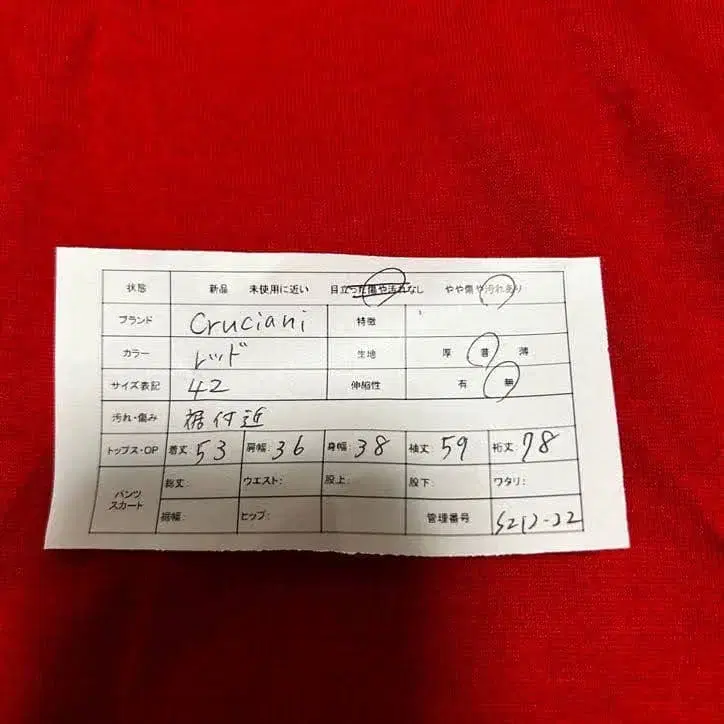 状態 新品 未使用に近い 目立った傷や汚れなし やや傷や汚れあり
ブランド Cruciani 特徴
カラー レッド 生地 厚 普 薄
サイズ表記 42 伸縮性 有 無
汚れ・傷み 裾付近
トップス・OP 着丈: 53 肩幅: 36 身幅: 38 袖丈: 59 裄丈: 78
パンツ スカート 総丈: ウエスト: 股上: 股下: ワタリ:
裾幅: ヒップ: 管理番号